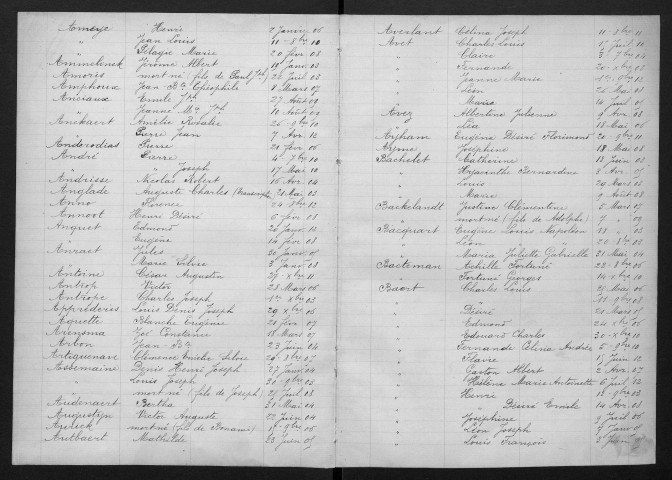 Amerye Henri 2 Janvr 06
" Jean Louis 11 8bre 10
" Pélagie Marie 20 févr 08
Ammelinck Jérôme Albert 19 Janv 03
Amoris mort né (fils de Paul Jph) 22 Juil 03
Amphoux Jean Bte Théophile 8 Mars 07
Anciaux Emile Jph 27 Août 09
" Jeanne Mie Jph 10 Août 09
Anckaert Amélie Rosalie 26 9bre 10
" Pierre Jean 7 Avr 12
Anderodias Pierre 21 févr 06
André Pierre 4 7bre 10
" " Joseph 17 Mai 10
Andrisse Nicolas Robert 16 Avr 04
Anglade Auguste Charles (transcript) 28 Mai 03
Anno Florence 24 8bre 12
Annoot Henri Désiré 6 févr 03
Anquet Edmond 20 Janv 12
" Eugène 14 févr 03
Anraet Jules 30 Janv 05
" Marie Silvie 3 Janv 03
Antoine César Augustin 29 Xbre 11
Antrop Victor 28 Mars 06
Antrope Charles Joseph 1er Xbre 03
Appréderis Louis Denis Joseph 29 Xbre 06
Aquette Blanche Eugénie 21 févr 07
Arensma Zoé Constance 18 Mars 11
Arbon Jean Bte 23 Juin 04
Artiquenave 20 8bre 05
Assemaine Denis Henri Joseph 27 Janv 04
" Louis Joseph 30 9bre 06
" mort né (fils de Joseph) 29 Juil 03
Audenaert Bertha 31 Mai 04
Augustijn Victor Auguste 22 Juin 04
mort né (fils de Bonami) 1er 9bre 06
Autbaert Mathilde 22 Juin 05
Averlant Célina Joseph 11 8bre 11
Avet Charles Louis 15 Juil 11
" Claire 3 7bre 04
" Fernande 20 Xbre 03
" Jeanne Marie 1er 9bre 12
" Léon 26 Mai 03
" Maria 14 Juil 05
Avez Albertine Julienne 9 Avr 08
" Léa 18 Mai 06
Eugène Désiré Florimond 20 9bre 11
Joséphine 18 Mai 08
Bachelet Catherine 18 Juin 03
" Hyacinthe Bernardine 8 Avr 05
" Louis 20 Mars 03
" Marie 9 Août 08
Backelandt Justine Clémentine 2 Mars 07
" mort né (fils de Adolphe) 7 " 03
Bacquart Eugène Louis Napoléon 18 " 03
" Léon " 22 8bre 03
" Maria Juliette Gabrielle 31 Mai 04
Baeteman Achille Fortuné 22 8bre 06
" Fortuné Georges 14 Xbre 10
Baert Charles Louis 21 Mai 06
" " 11 9bre 08
" Désiré 20 Mars 03
" Edmond 24 Xbre 06
" Edouard Charles 30 Xbre 11
" Fernande Célina Andrée 5 8bre 10
" Flavie 15 Juin 12
" Gaston Albert 2 Avr 07
" Hélène Marie Antoinette 6 Juil 12
" Henri 18 9bre 03
" " Désiré Emile 14 Avr 03
" Joséphine 2 Juil 06
" Léon Joseph 7 Janv 05
" Louis François